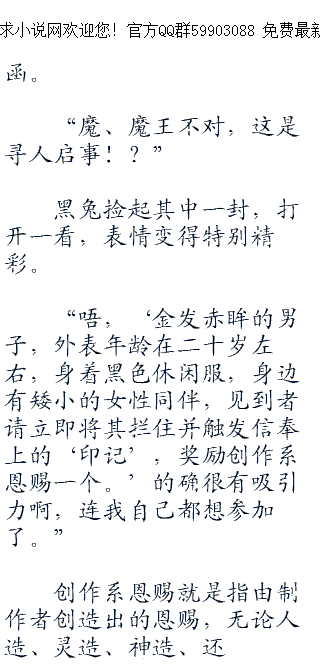 求小说网欢迎您！官方QQ群59903088 免费最新
函。
“魔、魔王不对，这是
寻人启事！？”
黑兔捡起其中一封，打
开一看，表情变得特别精
彩。
“唔，‘金发赤眸的男
子，外表年龄在二十岁左
右，身着黑色休闲服，身边
有矮小的女性同伴，见到者
请立即将其拦住并触发信奉
上的‘印记’，奖励创作系
恩赐一个。’的确很有吸引
力啊，连我自己都想参加
了。”
创作系恩赐就是指由制
作者创造出的恩赐，无论人
造、灵造、神造、还